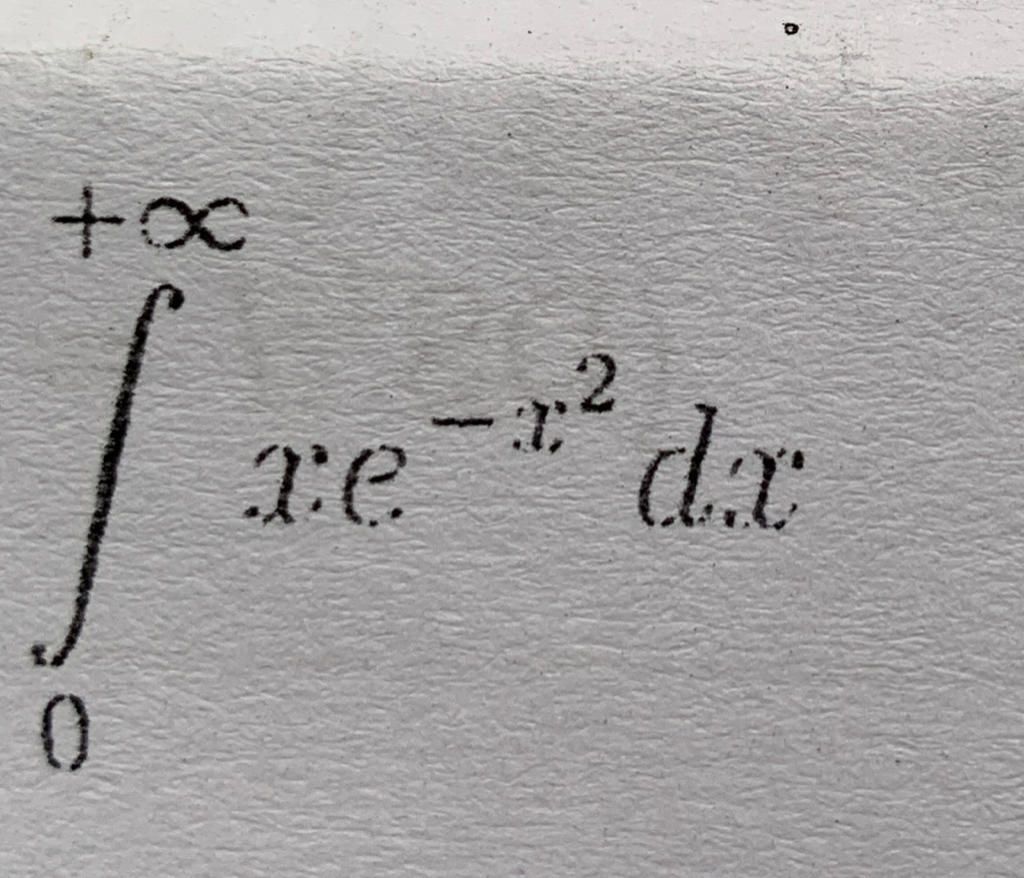 \int_{0}^{+\infty} xe^{-x^2} dx